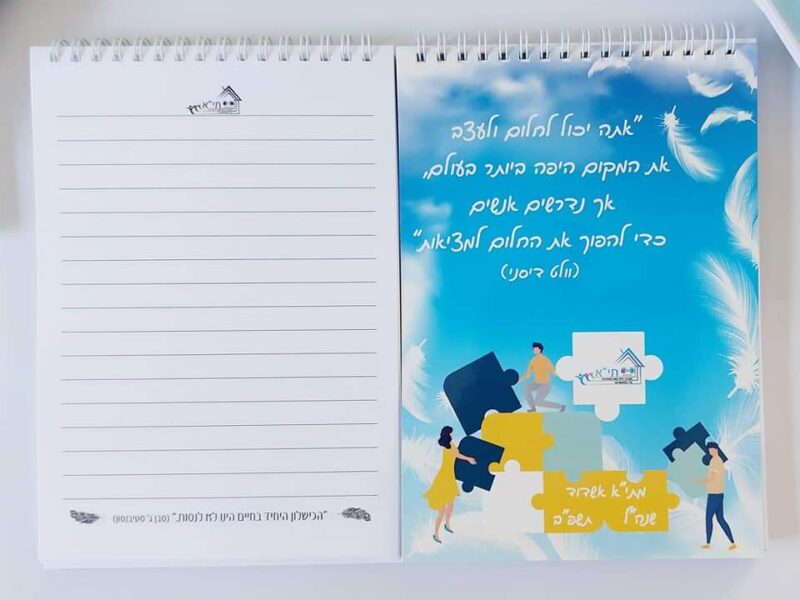 "אתה יכול לחלום ולעצב
את המקום היפה ביותר בעולם,
אך נדרשים אנשים
כדי להפוך את החלום למציאות"
(וולט דיסני)
תי"א
מתי"א אשדוד
שנה"ל תשפ"ב
תי"א
"הכישלון היחיד בחיים הינו לא לנסות." (סבן ג' סטיבנסון)